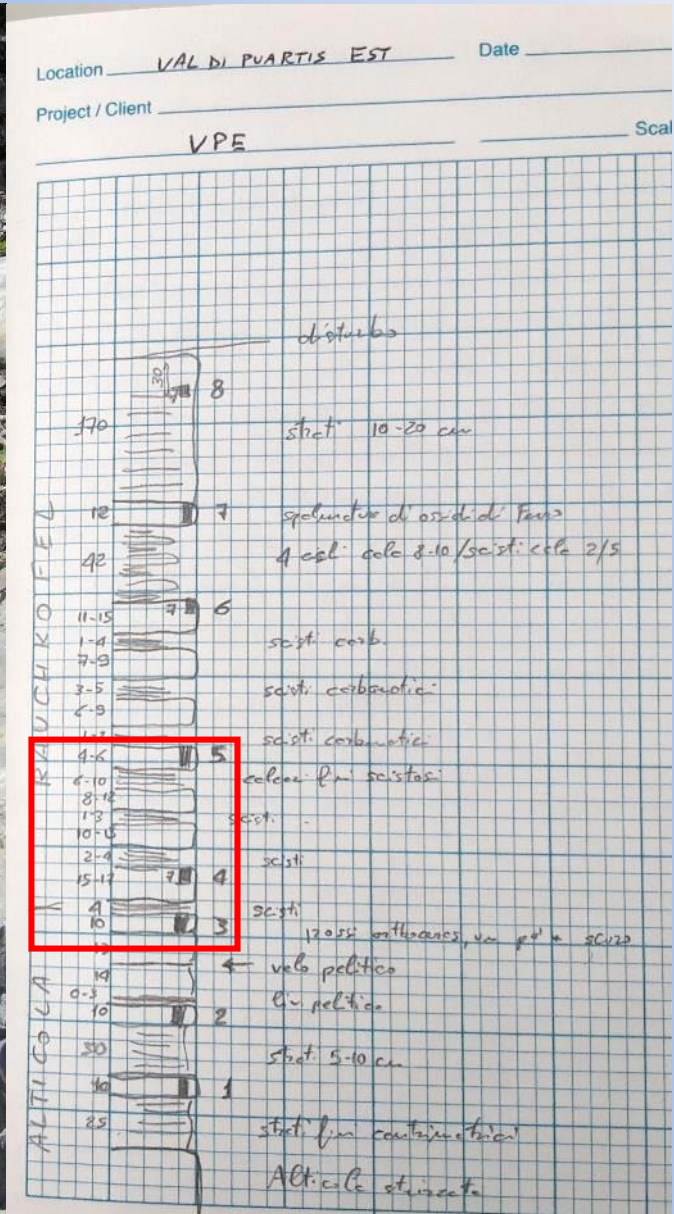 Location VAL DI PUARTIS EST Date
Project / Client
VPE Scal
disturbo
30
8
170 strati 10-20 cm
12 7 spalmature d'ossidi di Ferro
42 4 calc 8-10/scisti 2/5
11-15 7 6
1-4 scisti carb.
7-9
3-5 scisti carbonatici
6-9
scisti carbonatici
4-6 5
6-10 calcari fini scistosi
8-12
1-3 scisti
10-15
2-4 scisti
15-17 7 4
4 scisti
10 3 grossi orthoceras, un po' + scuro
← velo pelitico
14
0-3 liv pelitico
10 2
30 strati 5-10 cm
10 1
25 strati fini centimetrici
Alticola
RAUCHKOFEL
ALTICOLA